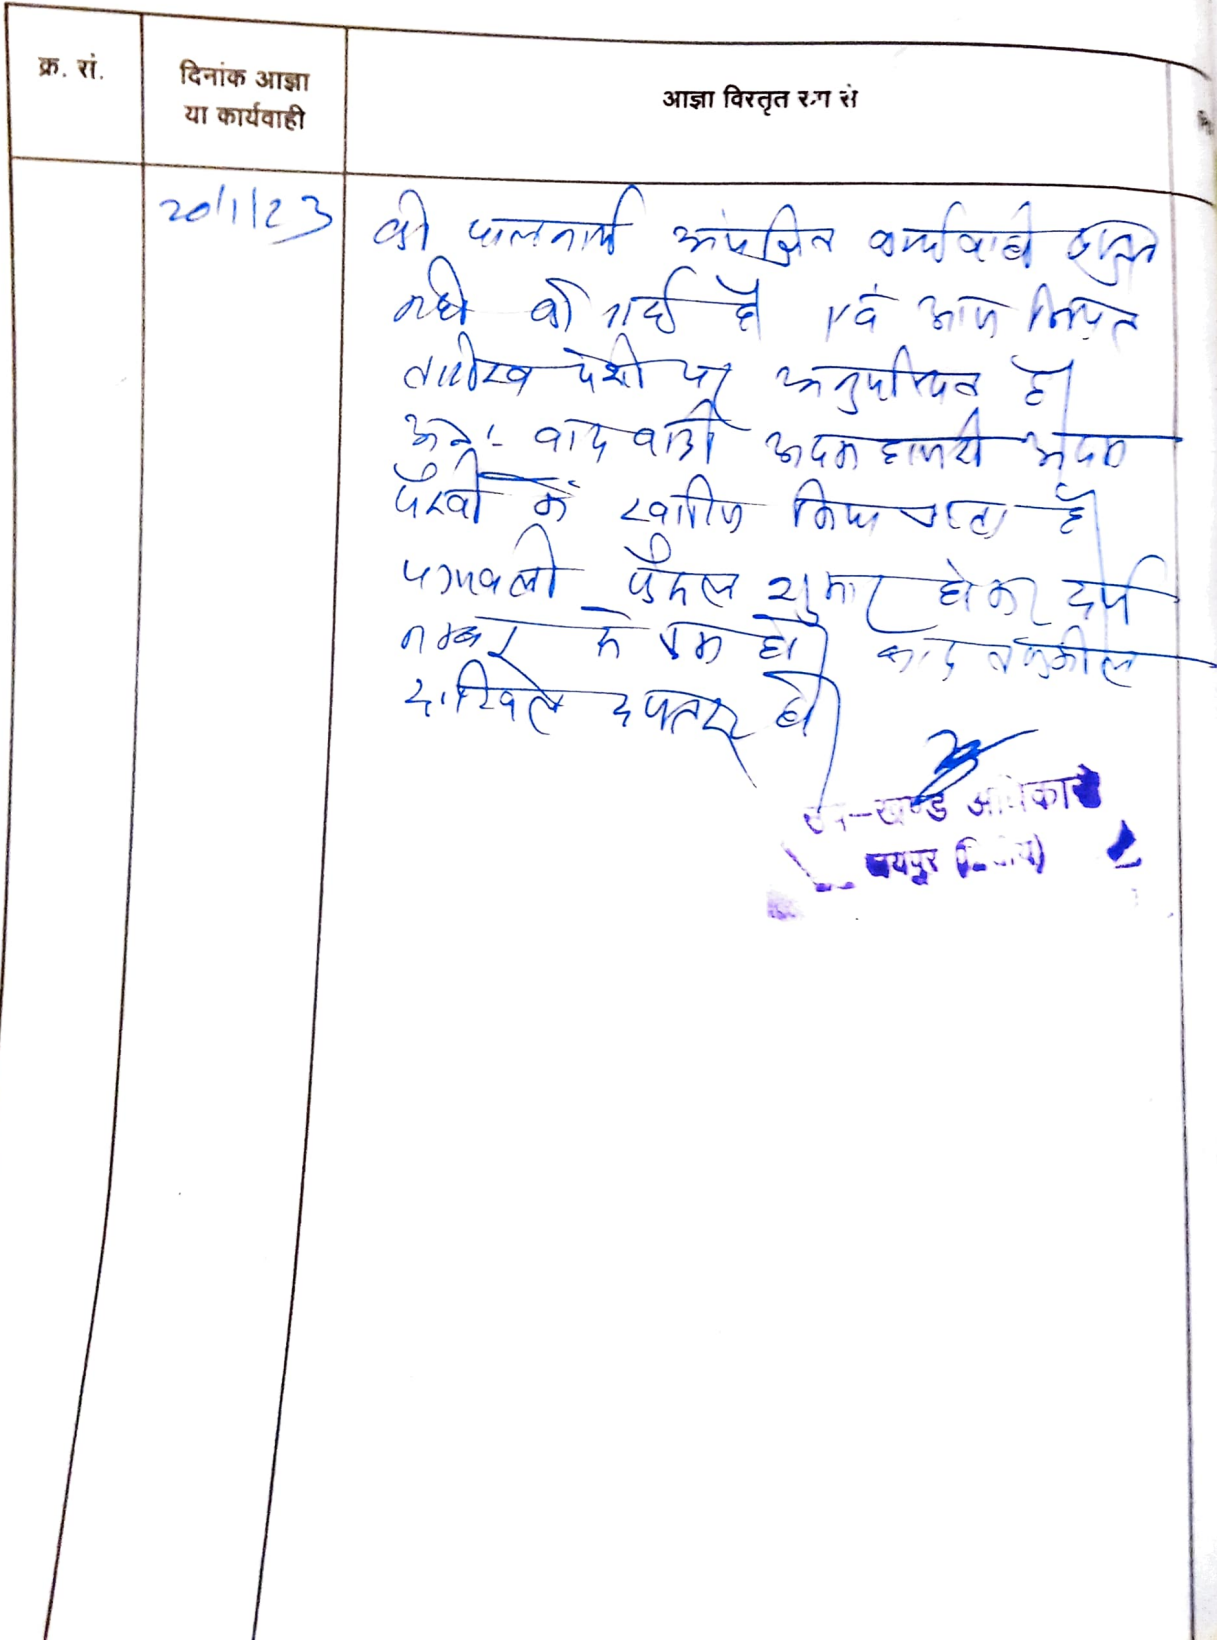 क्र. सं.
दिनांक आज्ञा
या कार्यवाही
आज्ञा विस्तृत रूप से
20/1/23
की पालनार्थ अपेक्षित कार्यवाही प्रस्तुत
नही की गई है एवं आज नियत
तारीख पेशी पर अनुपस्थित है।
अतः वाद वादी अदम हाजरी अदम
पैरवी में खारिज किया जाता है।
पत्रावली फैसल शुमार होकर दर्ज
नम्बर से कम हो। बाद तकमील
दाखिल दफ्तर हो।
उप-खण्ड अधिकारी
जयपुर